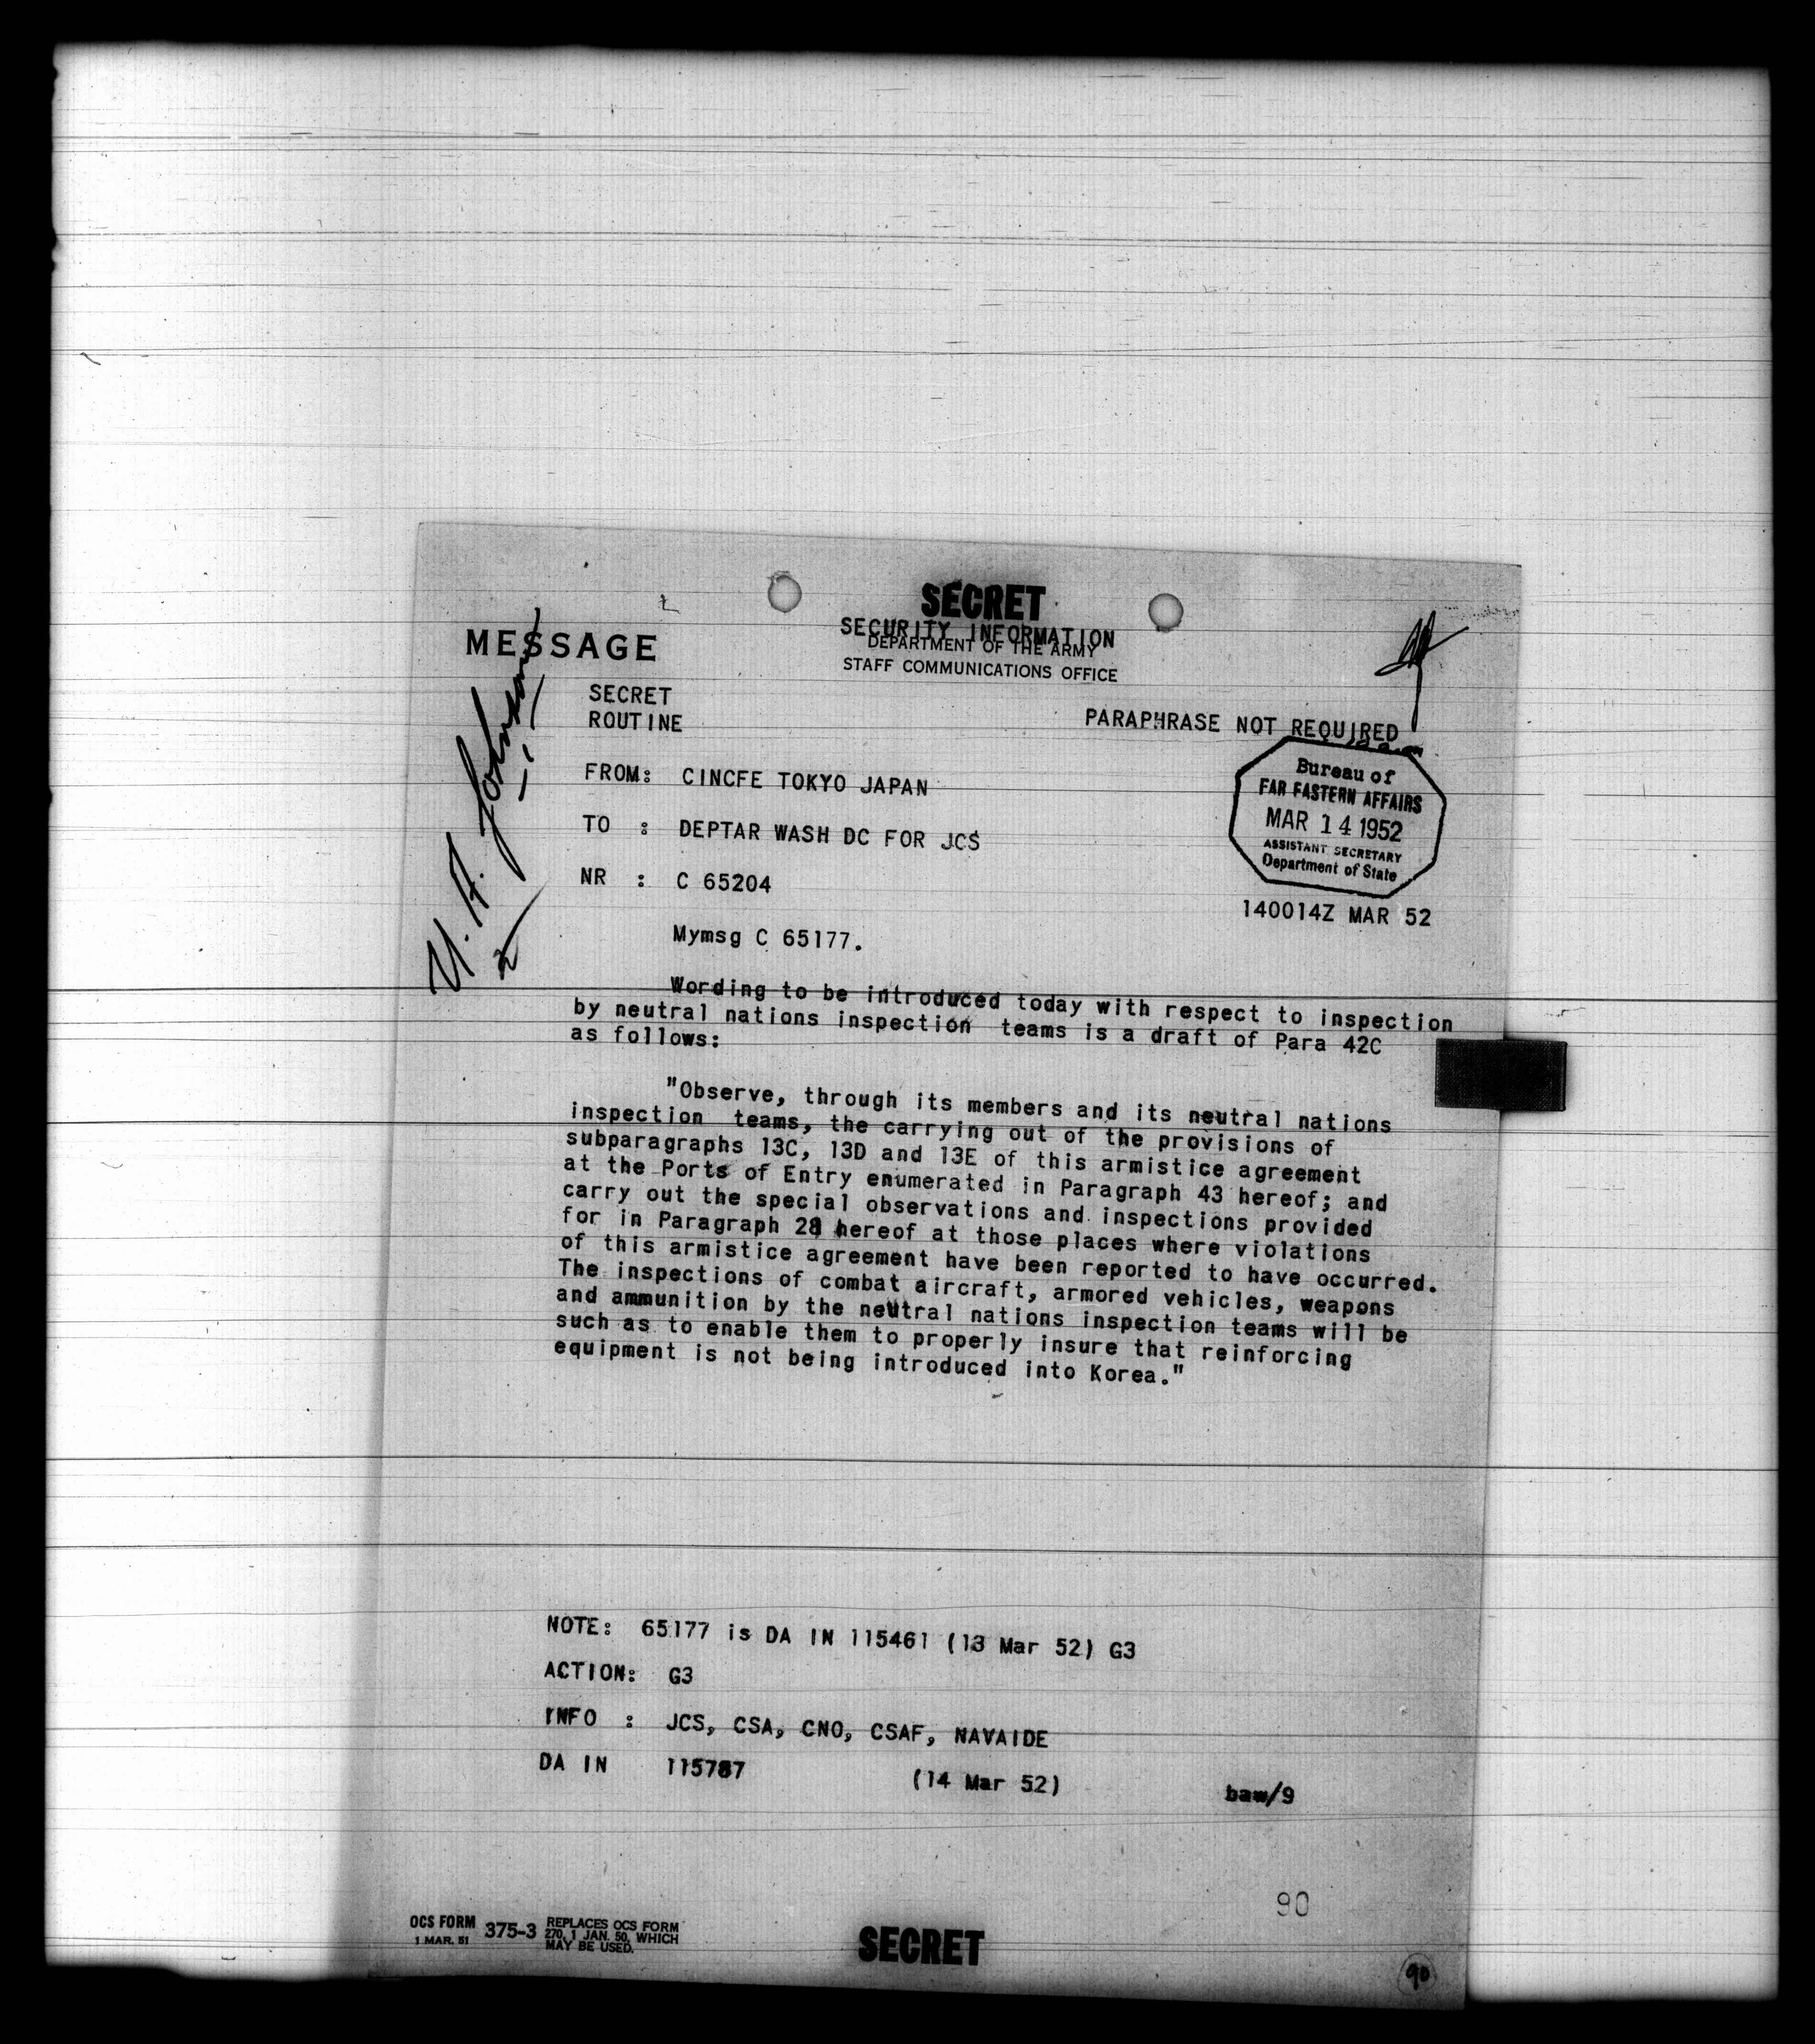 SECRET
SECURITY INFORMATION
MESSAGE
DEPARTMENT OF THE ARMY
STAFF COMMUNICATIONS OFFICE
U. A. Johnson
2
SECRET
ROUTINE
PARAPHRASE NOT REQUIRED
FROM: CINCFE TOKYO JAPAN
Bureau of
FAR EASTERN AFFAIRS
MAR 14 1952
ASSISTANT SECRETARY
Department of State
TO : DEPTAR WASH DC FOR JCS
NR : C 65204
140014Z MAR 52
Mymsg C 65177.
Wording to be introduced today with respect to inspection
by neutral nations inspection teams is a draft of Para 42C
as follows:
"Observe, through its members and its neutral nations
inspection teams, the carrying out of the provisions of
subparagraphs 13C, 13D and 13E of this armistice agreement
at the Ports of Entry enumerated in Paragraph 43 hereof; and
carry out the special observations and inspections provided
for in Paragraph 28 hereof at those places where violations
of this armistice agreement have been reported to have occurred.
The inspections of combat aircraft, armored vehicles, weapons
and ammunition by the neutral nations inspection teams will be
such as to enable them to properly insure that reinforcing
equipment is not being introduced into Korea."
NOTE: 65177 is DA IN 115461 (13 Mar 52) G3
ACTION: G3
INFO : JCS, CSA, CNO, CSAF, NAVAIDE
DA IN 115787 (14 Mar 52) baw/9
90
OCS FORM 375-3 REPLACES OCS FORM
1 MAR. 51 270, 1 JAN. 50, WHICH
MAY BE USED.
SECRET
90